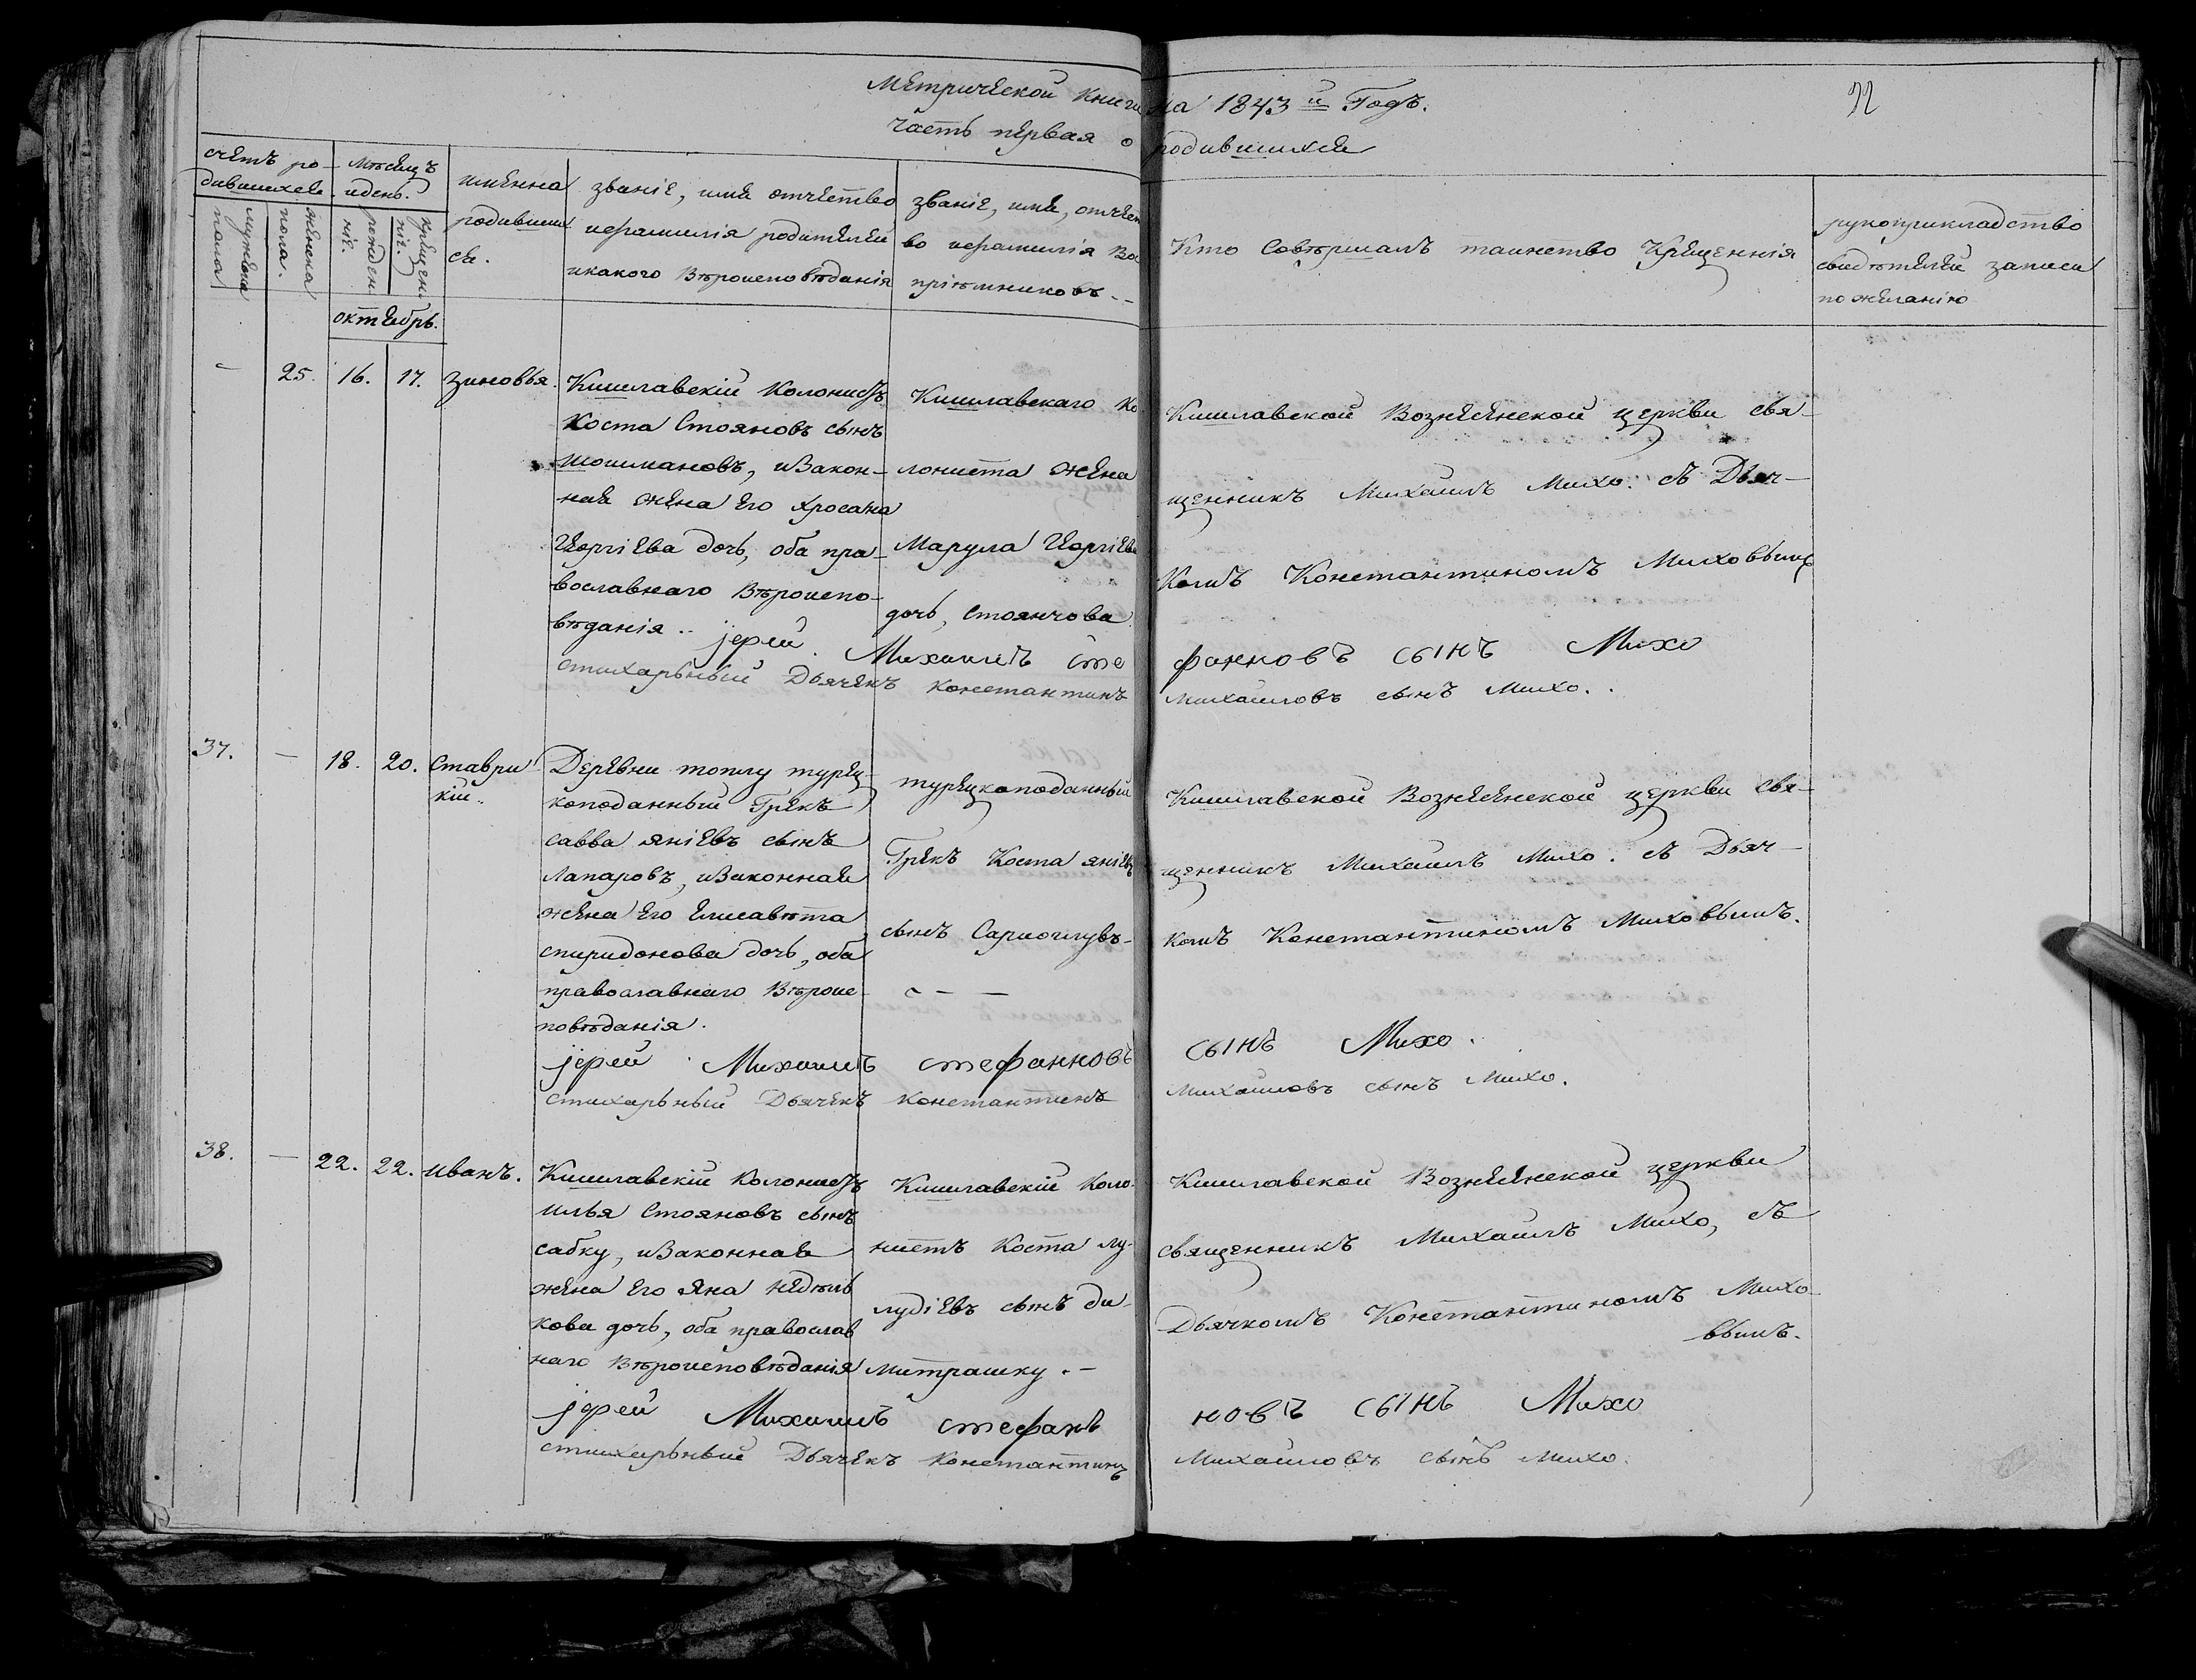 Метрической книги на 1843 й Годъ.
32
часть первая о родившихся
счетъ ро-
дившихся
мужеска
пола
женска
пола.
Мѣсяцъ
и день.
рожден
ніе.
крещен
ніе.
октябрь.
имянна
родивших
ся.
званіе, имя отчество
и фамилія родителей
и какого Вѣроисповѣданія
званіе, имя, отчест
во и фамилія Вос
пріѣмниковъ.-
Кто Совѣршалъ таинство Крещеннія
рукоприкладство
свидѣтелей записи
по желанію
-
25.
16.
17.
Зиновья.
Кишлавскій Колонистъ
Коста Стояновъ сынъ
шошмановъ, и Закон-
ная жена Его Хросана
Георгіева дочь, оба пра-
вославнаго Вѣроиспо-
вѣданія..
Кишлавскаго ко
лониста жена
Марула Георгіева
дочь, Стоянчова.
Кишлавской Вознесенской церкви свя-
щенникъ Михаилъ Михо. съ Дьяч-
комъ Константиномъ Миховымъ
іерей. Михаилъ сте фанновъ сынъ Михо
стихарьный Дьячекъ Константинъ Михаиловъ сынъ Михо..
37.
-
18.
20.
Ставри
кій.
Деревни топлу турец-
коподанный Грекъ
Савва яніевъ сынъ
Лапаровъ, и Законная
жена Его Елисавѣта
спиридонова дочь, оба
православнаго Вѣроис-
повѣданія.
турецкоподанный
Грекъ Коста яніевъ
сынъ Сариоглувъ-
- - -
Кишлавской Вознесенской церкви свя-
щенникъ Михаилъ Михо. съ Дьяч-
комъ Константиномъ Миховымъ.
іерей. Михаилъ стефанновъ сынъ Михо.
стихарьный Дьячекъ Константинъ Михаиловъ сынъ Михо.
38.
-
22.
22.
Иванъ.
Кишлавскій Колонистъ
илья Стояновъ сынъ
сабку, и Законная
жена Его яна недѣль
кова дочь, оба православ
наго Вѣроисповѣданія
Кишлавскій Коло-
нистъ Коста лу-
лудіевъ сынъ ди-
митрашку.-
Кишлавской Вознесенской церкви
священникъ Михаилъ Михо, съ
Дьячкомъ Константиномъ Михо
вымъ.
іерей Михаилъ стефан новъ сынъ Михо
стихарьный Дьячекъ Константинъ Михаиловъ сынъ Михо.